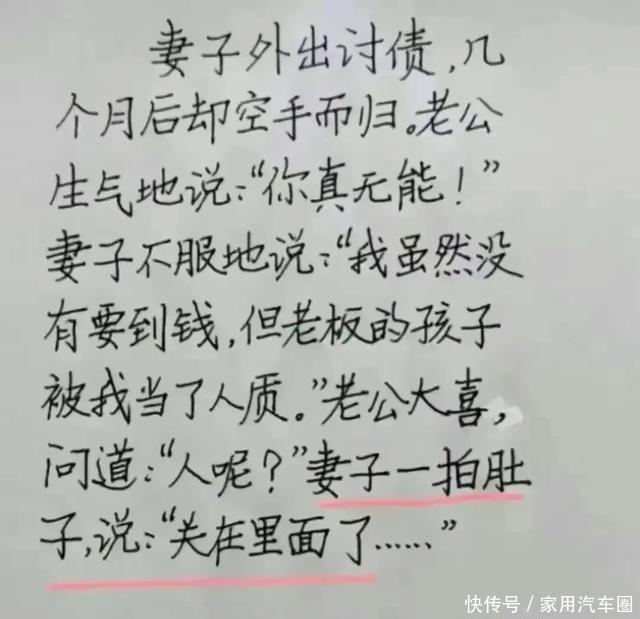 妻子外出讨债,几
个月后却空手而归。老公
生气地说:“你真无能!”
妻子不服地说:“我虽然没
有要到钱,但老板的孩子
被我当了人质。”老公大喜,
问道:“人呢?”妻子一拍肚
子,说:“关在里面了……”
快传号/家用汽车圈